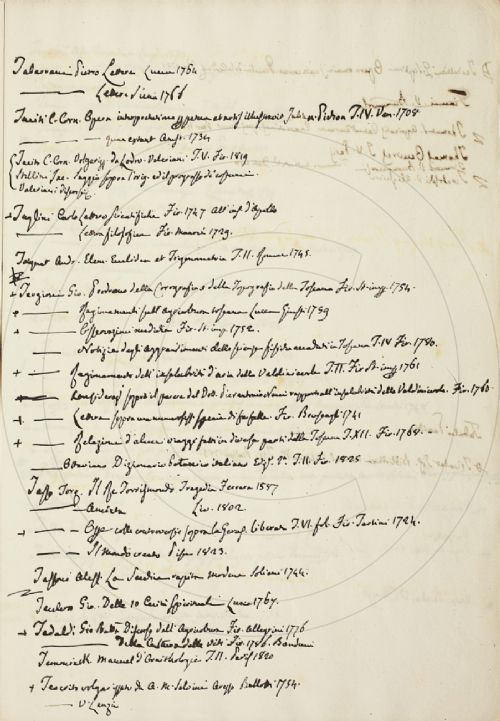 Tabarrani Pietro Lettera Lucca 1764
—— Lettera Siena 1766
Taciti C. Corn. Opera interpretatione perpetua et notis illustravit Julian. Pichon T. IV. Ven. 1708
—— quae extant Amst. 1734
Tacito C. Corn. Volgarizz. da Lodov. Valeriani. T. V. Fir. 1819
Stellini Jac. Saggio sopra l'orig. ed il progresso de costumi
Valeriani discorso
+ Taglini Carlo Lettere Scientifiche Fir. 1747 All' ins. d'Apollo
—— Lettera filosofica Fir. Manni 1729.
Taquet Andr. Elem. Euclidea et Trigonometria T. II. Romae 1745.
+ Targioni Gio. Prodromo della Corografia e della Topografia della Toscana Fir. St. imp. 1754.
+ —— Ragionamenti sull'Agricoltura toscana Lucca Giusti 1759
+ —— Osservazioni mediche Fir. St. imp. 1752.
—— Notizie degli Aggrandimenti delle scienze fisiche accaduti in Toscana T. IV Fir. 1780.
+ —— Ragionamento dell'insalubrità d'aria della Valdinievole T. II. Fir. St. imp. 1761
+ —— sopra il parere del Dot. rapporto all'insalubrità della Valdinievole. Fir. 1760
+ —— Lettera sopra una numerosiss. specie di farfalle Fir. 1741
+ —— Relazioni d'alcuni viaggi fatti in diverse parti della Toscana T. XII. Fir. 1768.
—— Ottaviano Dizionario botanico italiano Ediz. 2ª. T. II. Fir. 1825
Tasso Torq. Il Re Torrismondo Tragedia Ferrara 1587
—— Aminta Liv. 1802.
+ —— Opere colle controversie sopra la Gerus. liberata T. VI. fol. Fir. Tartini 1724.
—— Il Mondo creato Pisa 1823.
Tassoni Aless. La Secchia rapita Modena Soliani 1744.
Taulero Gio. Delle 10 Cecità Spirituali Lucca 1767.
+ Tadaldi Gio Batta Discorso dell'Agricoltura Fir. Allegrini 1776
—— Della Coltura delle viti Fir. 1780.
Temminck Manuel d'Ornithologie T. II. Paris 1820
+ Teocrito volgarizzato da A. M. Salvini Arezzo Bellotti 1754.
—— V. Longin